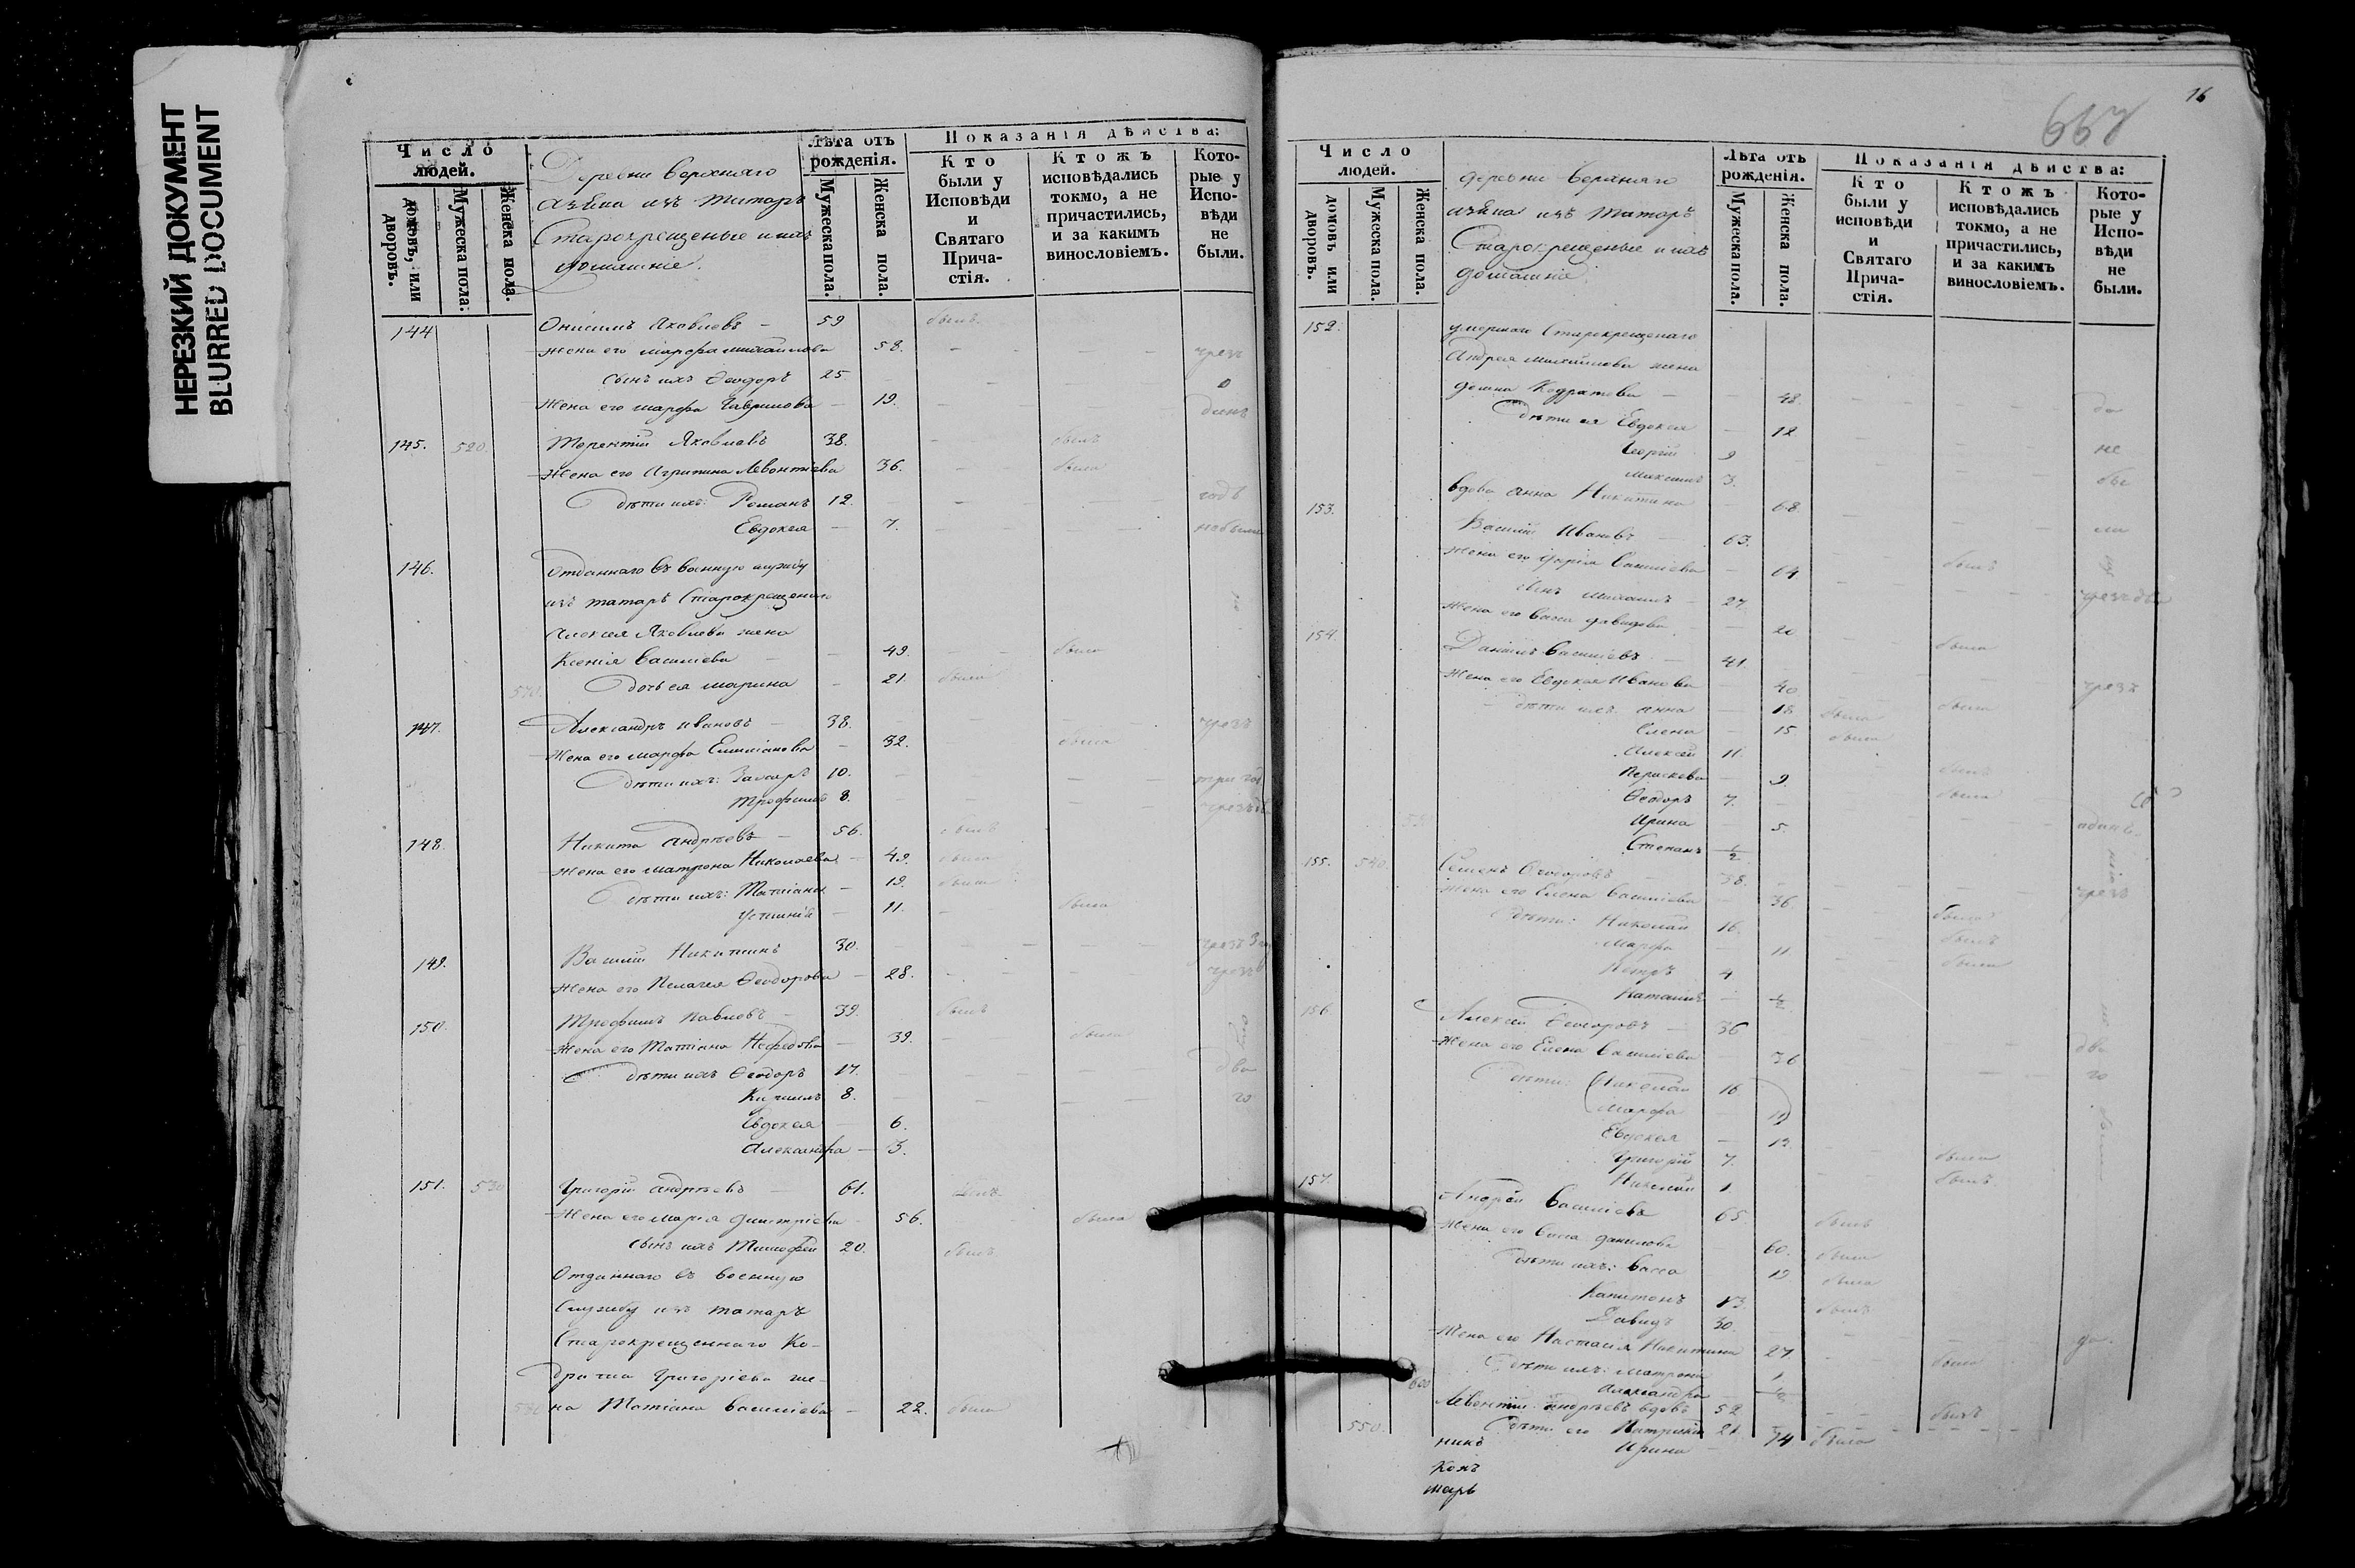 НЕРЕЗКИЙ ДОКУМЕНТ
BLURRED DOCUMENT
Число людей.
домовъ, или дворовъ.
Мужеска пола.
Женска пола.
Деревни Верхняго
Азѣква изъ татаръ
Старокрещеные и ихъ
домашніе.
Лѣта отъ рожденія.
Мужеска пола.
Женска пола.
Показанія дѣйства:
Кто были у Исповѣди и Святаго Прича-стія.
Ктожъ исповѣдались токмо, а не причастились, и за какимъ винословіемъ.
Кото-рые у Испо-вѣди не были.
144 Онисимъ Яковлевъ - 59 былъ
Жена его Марфа Михаилова 58. чрезъ
сынъ ихъ Ѳеодоръ 25
Жена его Марфа Гаврилова - 19.
145. 520 Терентій Яковлевъ 38. былъ
Жена его Агрипина Левонтіева 36. была
дѣти ихъ: Романъ 12. годъ
Евдокея - 7. небыли
146. Отданнаго въ военную службу
изъ татаръ Старокрещенаго
Алексея Яковлева жена
Ксенія Василіева - 49. была
570 дочь ея Марина - 21. была
147. Александръ Ивановъ - 38. чрезъ
Жена его Марфа Емиліанова - 32. была
дѣти ихъ: Захаръ 10. три
Трофимъ 8.
148. Никита Андрѣевъ - 56. былъ
Жена его Матрона Николаева - 49. была
дѣти ихъ: Татіана - 19. была
Устинія - 11. была
149. Василій Никитинъ 30. чрезъ
Жена его Пелагея Ѳеодорова - 28. чрезъ
150. Трофимъ Павловъ - 39. былъ
Жена его Татіана Нефедова - 39. была
дѣти ихъ Ѳеодоръ 17. два
Кирилъ 8. го
Евдокея - 6.
Александра - 3.
151. 530 Григорій Андрѣевъ - 61. былъ
Жена его Марія Димитріева - 56. была
сынъ ихъ Тимофей 20. былъ
Отданнаго въ военную
Службу изъ татаръ
Старокрещеннаго Ко-
дратія Григоріева же-
580 на Татіана Василіева - 22. была
16
667
Число людей.
домовъ или дворовъ.
Мужеска пола.
Женска пола.
деревни Верхняго
изъ татаръ
Старокрещеные и ихъ
домашніе
Лѣта отъ рожденія.
Мужеска пола.
Женска пола.
Показанія дѣйства:
Кто были у исповѣди и Святаго Прича-стія.
Ктожъ исповѣдались токмо, а не причастились, и за какимъ винословіемъ.
Кото-рые у Испо-вѣди не были.
152. умершаго Старокрещенаго
Андрея Михаилова жена
Домна Кодратова - 48.
дѣти ея Евдокея - 12
Георгій 9 не
Максимъ 3. бы
вдова Анна Никитина 68 ли
153. Василій Ивановъ - 63. былъ
Жена его Дарія Василіева - 64
сынъ Михаилъ - 27. чрезъ два
Жена его Васса Давидова - 20 была
154. Даніилъ Василіевъ - 41.
Жена его Евдокея Иванова - 40 была чрезъ
дѣти ихъ: Анна - 18 была
Елена - 15 была
Алексей 11. былъ
Перасковья - 9. была
Ѳеодоръ 7.
Ирина - 5.
Степанъ 1/2
155. 540 Семенъ Ѳеодоровъ - 38. чрезъ
Жена его Елена Василіева - 36. была
дѣти: Николай 16. былъ
Марфа - 11 была
Петръ 4
Наталія - 1/2
156 Алексей Ѳеодоровъ - 36
Жена его Елена Василіева - 36 два
дѣти: Николай 16 го
Марфа - 11
Евдокея - 12 была
Григорій 7. былъ
Николай 1.
157. Андрей Василіевъ 65. былъ
Жена его Васса Данилова 60. была
дѣти ихъ: Васса 19 была
Капитонъ 13. былъ
Давидъ 30.
Жена его Настасія Никитина 27 была
дѣти ихъ: Матрона 1
600 Александра - 1/2
Левонтій Андрѣевъ вдовъ 52 былъ
550 дѣти его Патрикій 21.
Ирина - 14 была
никъ
Конъ
тарь